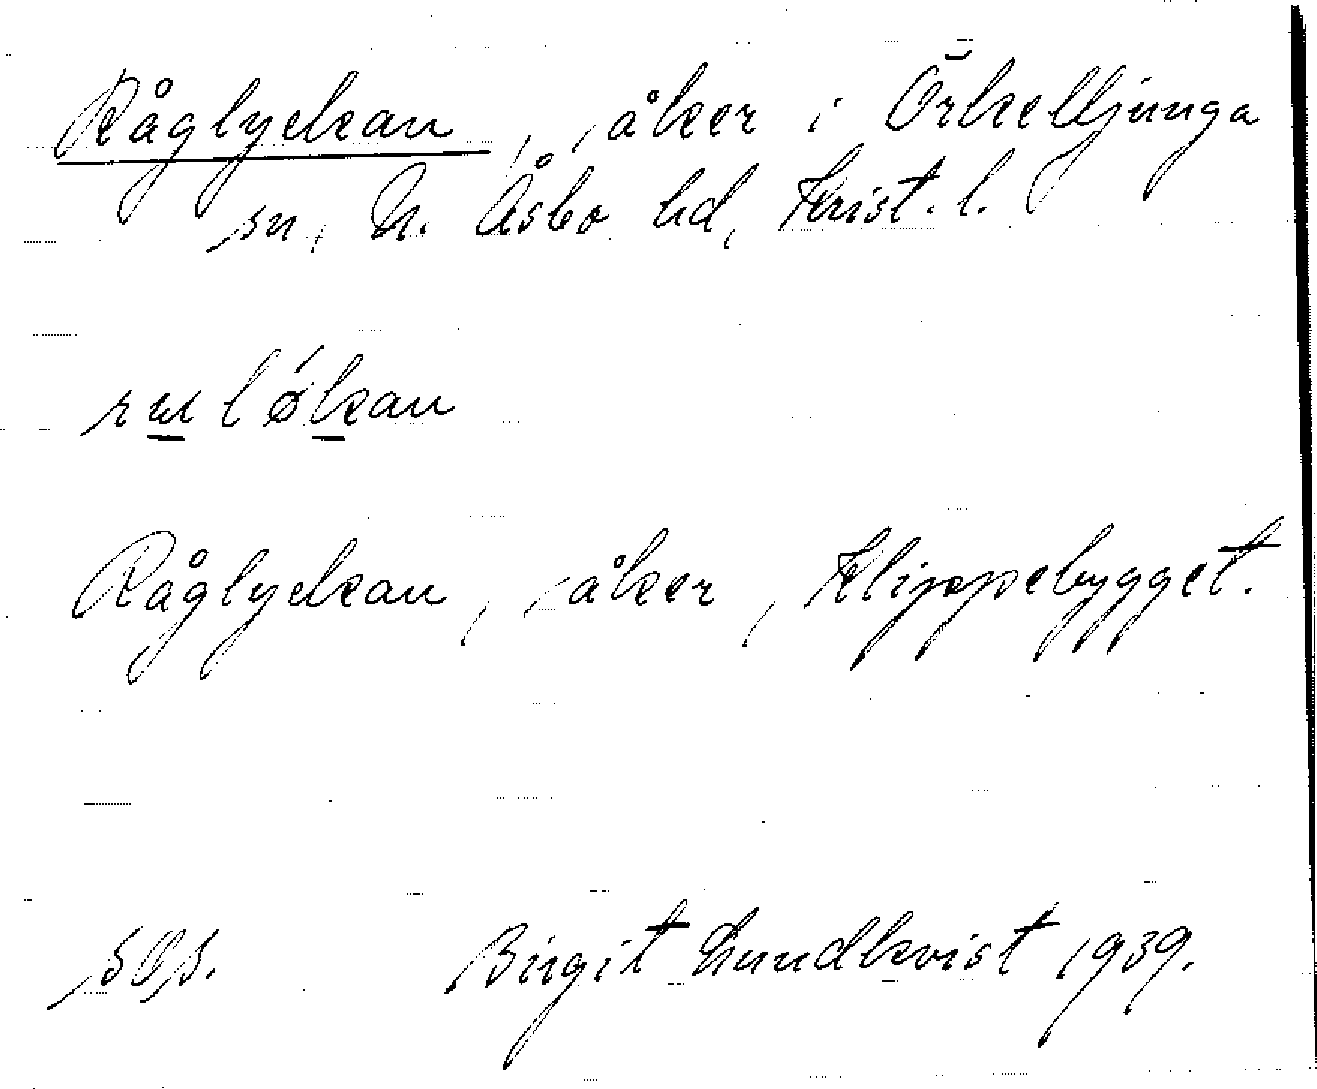 Råglyckan, åker i Örkelljunga
sn, N. Åsbo hd, Krist. l.
Råglyckan, åker, Klippebygget.
Birgit Lundkvist 1939.